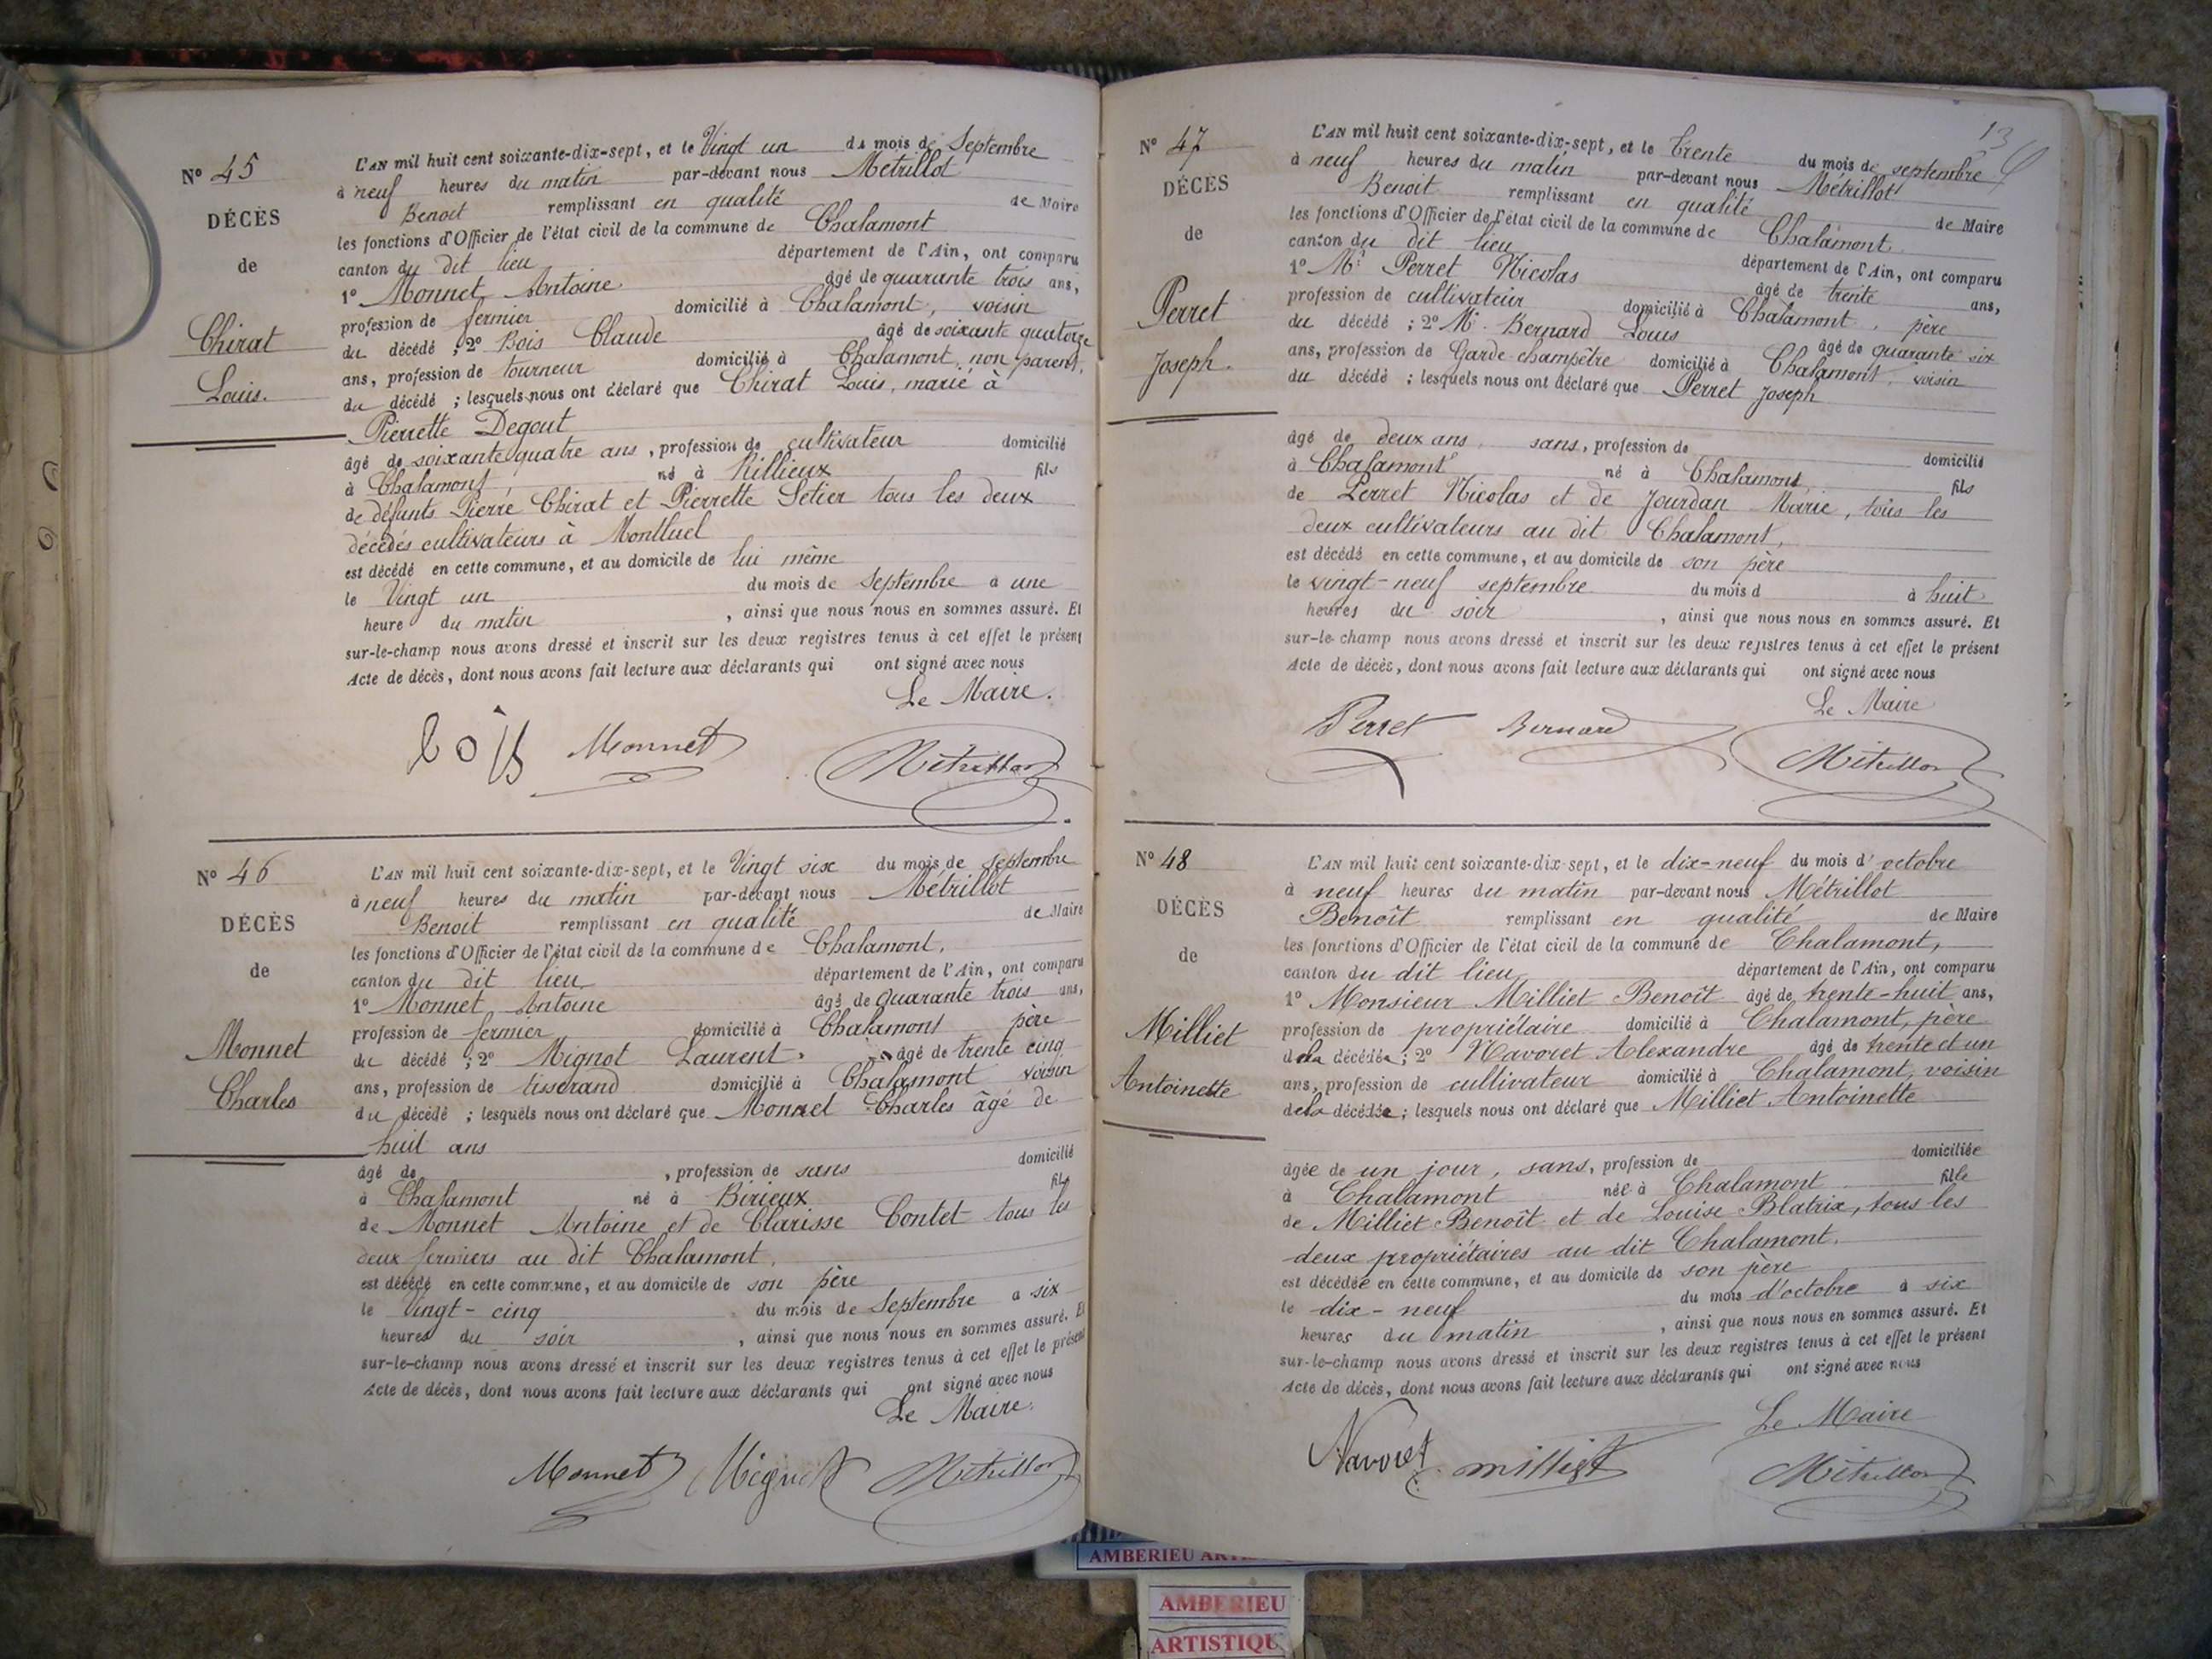 N° 45
DÉCÈS
de
Chirat
Louis.
L'AN mil huit cent soixante-dix-sept, et le Vingt un du mois de Septembre
à neuf heures du matin par-devant nous Métrillot
Benoit remplissant en qualité de Maire
les fonctions d'Officier de l'état civil de la commune de Chalamont
canton du dit lieu département de l'Ain, ont comparu
1° Monnet Antoine âgé de quarante trois ans,
profession de fermier domicilié à Chalamont, voisin
du décédé ; 2° Bois Claude âgé de soixante quatorze
ans, profession de tourneur domicilié à Chalamont, non parent,
du décédé ; lesquels nous ont déclaré que Chirat Louis, marié à
Pierrette Degout
âgé de soixante quatre ans, profession de cultivateur domicilié
à Chalamont, né à Rillieux fils
de défunts Pierre Chirat et Pierrette Setier tous les deux
décédés cultivateurs à Montluel
est décédé en cette commune, et au domicile de lui même
le Vingt un du mois de Septembre à une
heure du matin, ainsi que nous nous en sommes assuré. Et
sur-le-champ nous avons dressé et inscrit sur les deux registres tenus à cet effet le présent
Acte de décès, dont nous avons fait lecture aux déclarants qui ont signé avec nous
Le Maire.
Bois Monnet Métrillot
N° 46
DÉCÈS
de
Monnet
Charles
L'AN mil huit cent soixante-dix-sept, et le Vingt six du mois de septembre
à neuf heures du matin par-devant nous Métrillot
Benoit remplissant en qualité de Maire
les fonctions d'Officier de l'état civil de la commune de Chalamont,
canton du dit lieu département de l'Ain, ont comparu
1° Monnet Antoine âgé de quarante trois ans,
profession de fermier domicilié à Chalamont père
du décédé ; 2° Mignot Laurent, âgé de trente cinq
ans, profession de tisserand domicilié à Chalamont voisin
du décédé ; lesquels nous ont déclaré que Monnet Charles âgé de
huit ans
âgé de , profession de sans domicilié
à Chalamont né à Birieux fils
de Monnet Antoine et de Clarisse Contet tous les
deux fermiers au dit Chalamont,
est décédé en cette commune, et au domicile de son père
le Vingt-cinq du mois de Septembre a six
heures du soir, ainsi que nous nous en sommes assuré. Et
sur-le-champ nous avons dressé et inscrit sur les deux registres tenus à cet effet le présent
Acte de décès, dont nous avons fait lecture aux déclarants qui ont signé avec nous
Le Maire.
Monnet Mignot Métrillot
13
N° 47
DÉCÈS
de
Perret
Joseph.
L'AN mil huit cent soixante-dix-sept, et le Trente du mois de septembre
à neuf heures du matin par-devant nous Métrillot
Benoit remplissant en qualité de Maire
les fonctions d'Officier de l'état civil de la commune de Chalamont
canton du dit lieu département de l'Ain, ont comparu
1° Mr Perret Nicolas âgé de trente ans,
profession de cultivateur domicilié à Chalamont, père
du décédé ; 2° Mr. Bernard Louis âgé de quarante six
ans, profession de Garde-champêtre domicilié à Chalamont, voisin
du décédé ; lesquels nous ont déclaré que Perret Joseph
âgé de deux ans, sans, profession de domicilié
à Chalamont né à Chalamont fils
de Perret Nicolas et de Jourdan Marie, tous les
deux cultivateurs au dit Chalamont,
est décédé en cette commune, et au domicile de son père
le vingt-neuf septembre du mois d à huit
heures du soir, ainsi que nous nous en sommes assuré. Et
sur-le-champ nous avons dressé et inscrit sur les deux registres tenus à cet effet le présent
Acte de décès, dont nous avons fait lecture aux déclarants qui ont signé avec nous
Le Maire
Perret Bernard Métrillot
N° 48
DÉCÈS
de
Milliet
Antoinette
L'AN mil huit cent soixante-dix-sept, et le dix-neuf du mois d'octobre
à neuf heures du matin par-devant nous Métrillot
Benoît remplissant en qualité de Maire
les fonctions d'Officier de l'état civil de la commune de Chalamont,
canton du dit lieu département de l'Ain, ont comparu
1° Monsieur Milliet Benoît âgé de trente-huit ans,
profession de propriétaire domicilié à Chalamont, père
de la décédée ; 2° Navoret Alexandre âgé de trente et un
ans, profession de cultivateur domicilié à Chalamont, voisin
de la décédée ; lesquels nous ont déclaré que Milliet Antoinette
âgée de un jour, sans, profession de domiciliée
à Chalamont née à Chalamont fille
de Milliet Benoît et de Louise Blatrix, tous les
deux propriétaires au dit Chalamont.
est décédée en cette commune, et au domicile de son père
le dix-neuf du mois d'octobre à six
heures du matin, ainsi que nous nous en sommes assuré. Et
sur-le-champ nous avons dressé et inscrit sur les deux registres tenus à cet effet le présent
Acte de décès, dont nous avons fait lecture aux déclarants qui ont signé avec nous
Le Maire
Navoret milliet Métrillot
AMBERIEU
AMBERIEU
ARTISTIQU